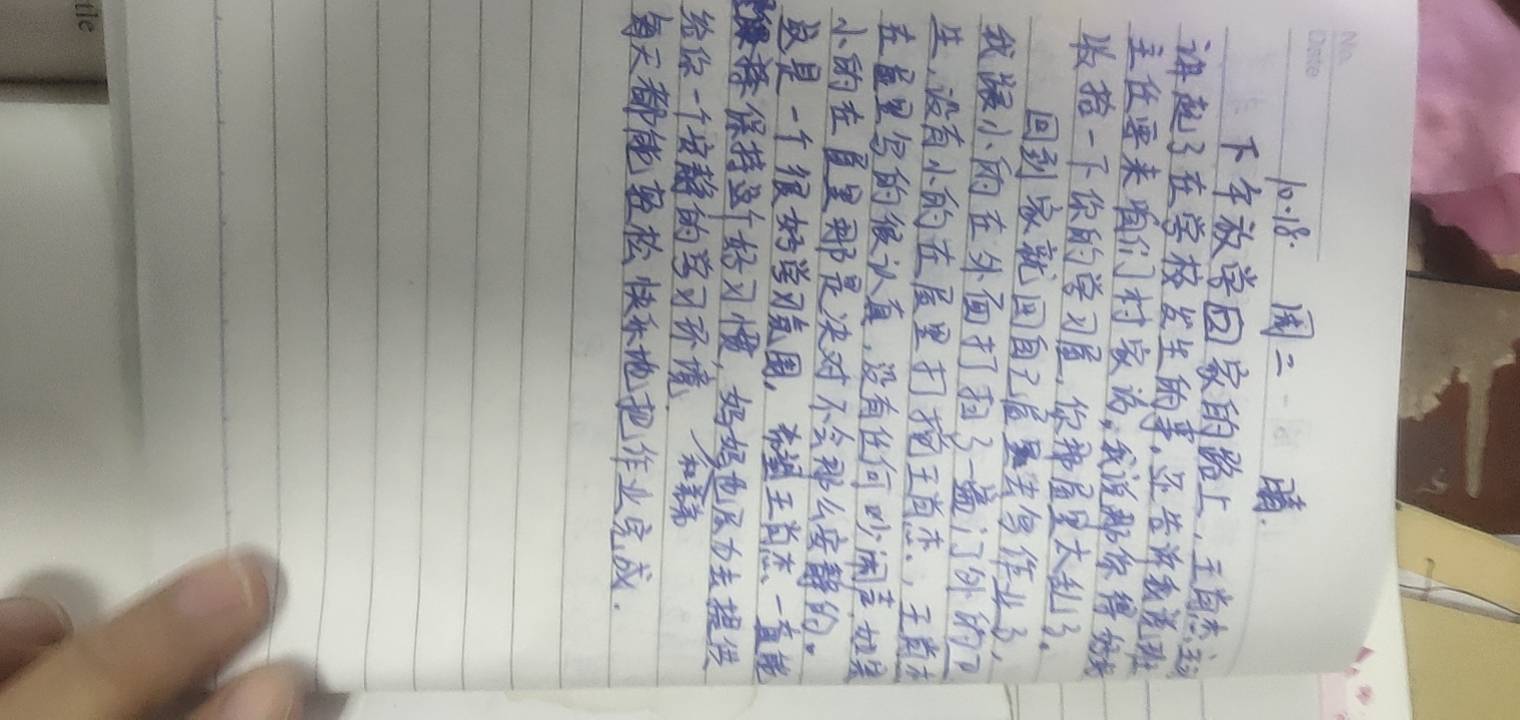 No.
Date
10.18. 周二 晴.
下午放学回家的路上,王首杰
讲起了在学校发生的事.还告诉我说班
主任要来咱们村家访,我说那你得好好
收拾一下你的学习屋,你那屋里太乱了.
回到家就回自己屋里去写作业了,
我跟小的在外面打扫了一遍门外的卫
生,没有小的在屋里打搅王首杰,王首杰
在屋里写的很认真,没有任何吵闹声,如果
小的在屋里那是决对不会那么安静的.
这是一个很好学习氛围,希望王首杰、一直能
保持这个好习惯,妈妈也尽力去提供
给你一个安静的学习环境,
每天都能轻松快乐地把作业完成.
tle